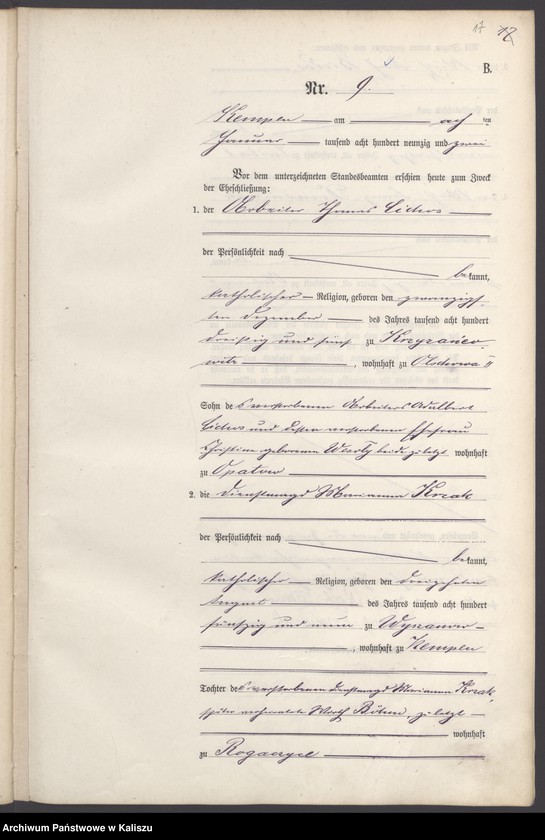 17 12
B.
Nr. 9.
Kempen am acht ten
Januar tausend acht hundert neunzig und zwei
Vor dem unterzeichneten Standesbeamten erschien heute zum Zweck
der Eheschließung:
1. der Arbeiter Thomas
der Persönlichkeit nach
bekannt,
katholischer Religion, geboren den zwanzigs-
ten Dezember des Jahres tausend acht hundert
dreißig und fünf zu
witz, wohnhaft zu Olszowa
Sohn des verstorbenen Arbeiters Adalbert
und dessen verstorbenen Ehefrau
Christine geborenen beide zuletzt wohnhaft
zu Opatow
2. die Dienstmagd Marianna Krzak
der Persönlichkeit nach
bekannt,
katholischer Religion, geboren den dreizehnten
August des Jahres tausend acht hundert
fünfzig und neun zu
, wohnhaft zu Kempen
Tochter der verstorbenen Dienstmagd Marianna Krzak,
später verehelichte Böhm, zuletzt
wohnhaft
zu
Archiwum Państwowe w Kaliszu